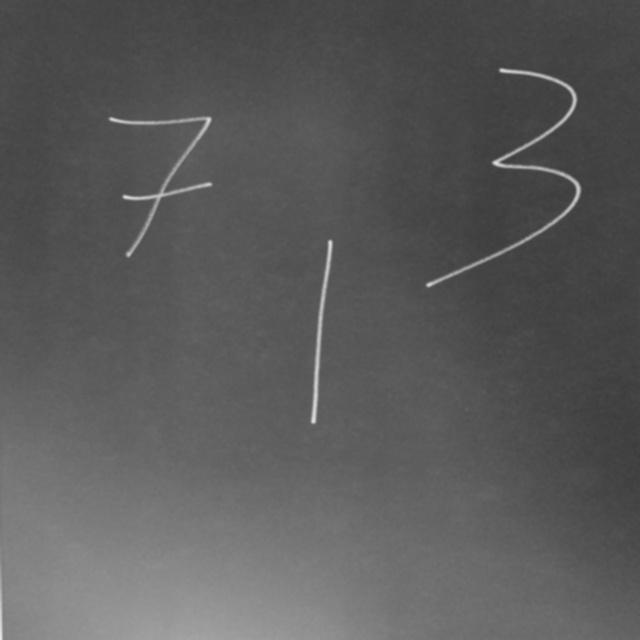 7 1 3